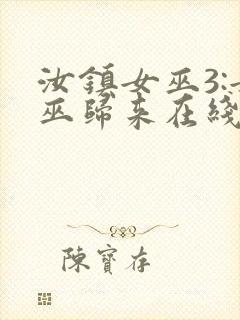 汝鎮女巫3:女
巫歸來在綫
陳寶存